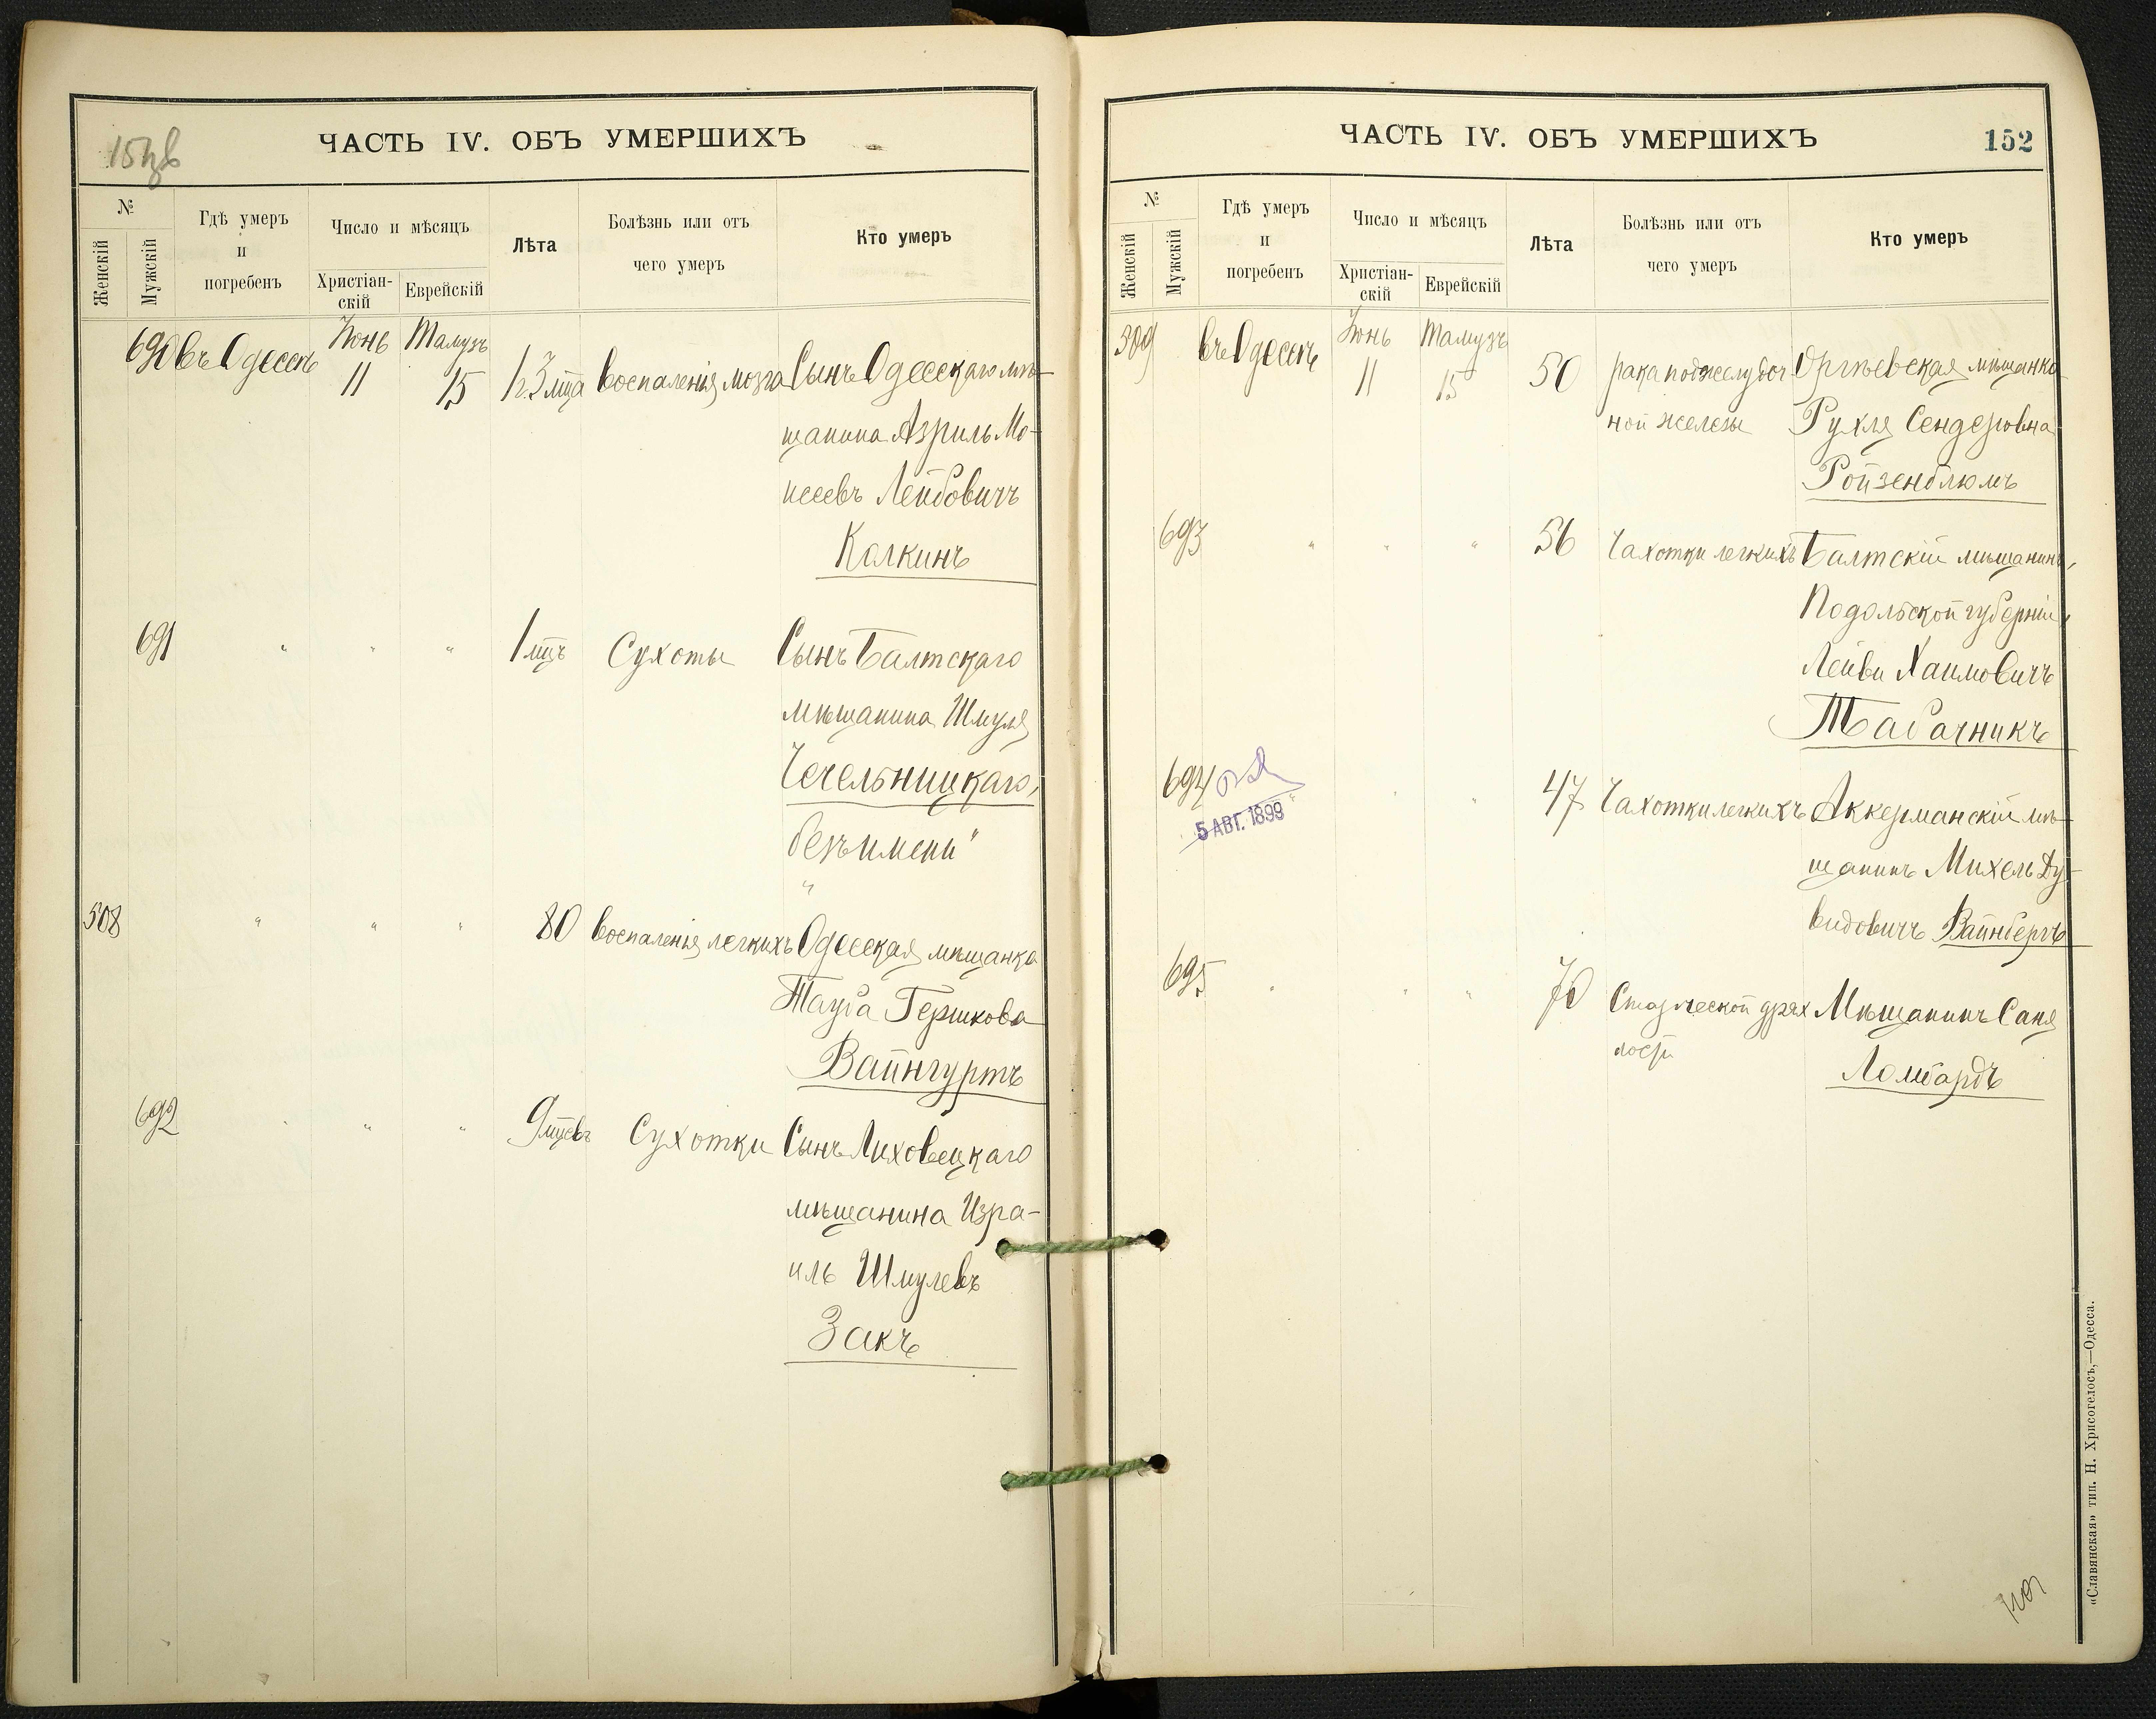 ЧАСТЬ IV. ОБЪ УМЕРШИХЪ
№
Женскій
Мужскій
Гдѣ умеръ
и
погребенъ
Число и мѣсяцъ
Христіан-
скій
Еврейскій
Лѣта
Болѣзнь или отъ
чего умеръ
Кто умеръ
690 въ Одессѣ Іюнь 11 Тамузъ 15 1 г. 3 мца воспаленія мозга Сынъ Одесскаго мѣ-
щанина Азриль Мо-
исеевъ Лейбовичъ
Калкинъ
691 " " " 1 мцъ Сухоты Сынъ Балтскаго
мѣщанина Шмуля
Чечельницкаго,
безъ имени"
508 " " " 80 воспаленія легкихъ Одесская мѣщанка
Тауба Гершкова
Вайнгуртъ
692 " " " 9 мцевъ Сухотки Сынъ Ляховецкаго
мѣщанина Изра-
иль Шмулевъ
Закъ
ЧАСТЬ IV. ОБЪ УМЕРШИХЪ
152
№
Женскій
Мужскій
Гдѣ умеръ
и
погребенъ
Число и мѣсяцъ
Христіан-
скій
Еврейскій
Лѣта
Болѣзнь или отъ
чего умеръ
Кто умеръ
509 въ Одессѣ Іюнь 11 Тамузъ 15 50 рака поджелудоч Оргѣевская мѣщанка
ной железы Рухля Сендеровна
Ройзенблюмъ
693 " " " 56 Чахотки легкихъ Балтскій мѣщанинъ,
Подольской губерніи,
Лейви Хаимовичъ
Табачникъ
694 " " " 47 Чахотки легкихъ Аккерманскій мѣ-
щанинъ Михель Ду-
видовичъ Вайнбергъ
5 АВГ. 1899
695 " " " 70 Старческой дрях Мѣщанинъ Саня
лости Ломбардъ
«Славянская» тип. Н. Хрисогелосъ,—Одесса.